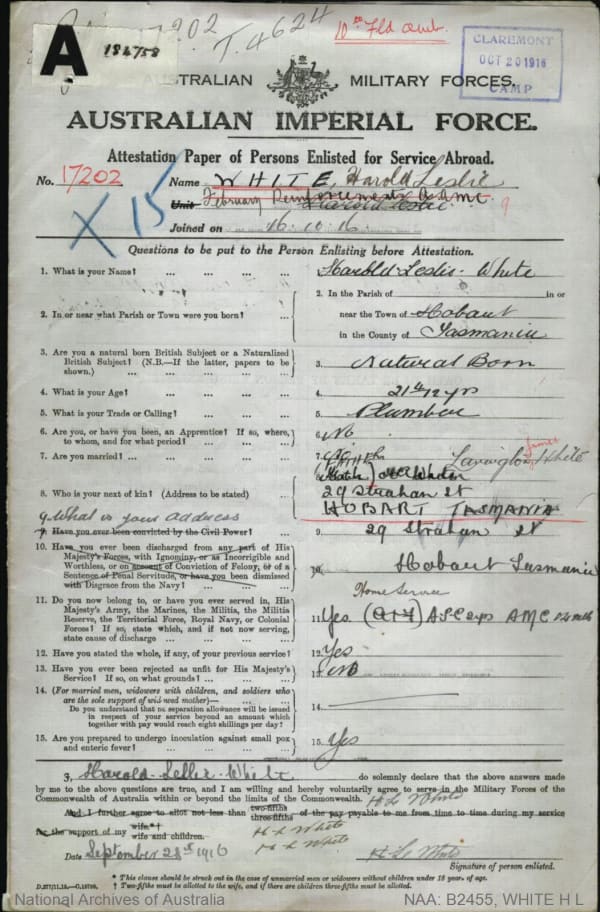 A
184758
17202
T.4624
10th Fld Amb.
CLAREMONT
OCT 20 1916
CAMP
AUSTRALIAN MILITARY FORCES.
AUSTRALIAN IMPERIAL FORCE.
Attestation Paper of Persons Enlisted for Service Abroad.
No. 17202 Name WHITE, Harold Leslie
X15
Unit February Reinforcements AAMC
Harold Leslie
Joined on 16.10.16
Questions to be put to the Person Enlisting before Attestation.
1. What is your Name? ... ... ... ... Harold Leslie White
2. In or near what Parish or Town were you born? ... 2. In the Parish of in or
near the Town of Hobart
in the County of Tasmania
3. Are you a natural born British Subject or a Naturalized
British Subject? (N.B.—If the latter, papers to be
shown.) ... ... ... ... 3. Natural Born
4. What is your Age? ... ... ... ... 4. 21 yrs
5. What is your Trade or Calling? ... ... ... 5. Plumber
6. Are you, or have you been, an Apprentice? If so, where,
to whom, and for what period? ... ... ... 6. No
7. Are you married? ... ... ... ... 7.
James
White
8. Who is your next of kin? (Address to be stated) ...
29 Strahan St
HOBART TASMANIA
9. What is your address
9. Have you ever been convicted by the Civil Power? ... 9. 29 Strahan St
10. Have you ever been discharged from any part of His
Majesty's Forces, with Ignominy, or as Incorrigible and
Worthless, or on account of Conviction of Felony, or of a
Sentence of Penal Servitude, or have you been dismissed
with Disgrace from the Navy? ... ... ... 10. Hobart Tasmania
Home Service
11. Do you now belong to, or have you ever served in, His
Majesty's Army, the Marines, the Militia, the Militia
Reserve, the Territorial Force, Royal Navy, or Colonial
Forces? If so, state which, and if not now serving,
state cause of discharge ... ... ... 11. Yes
12. Have you stated the whole, if any, of your previous service? 12. Yes
13. Have you ever been rejected as unfit for His Majesty's
Service? If so, on what grounds? ... ... ... 13. No
14. (For married men, widowers with children, and soldiers who
are the sole support of widowed mother)—
Do you understand that no separation allowance will be issued
in respect of your service beyond an amount which
together with pay would reach eight shillings per day? 14.
15. Are you prepared to undergo inoculation against small pox
and enteric fever? ... ... ... ... 15. Yes
I, Harold Leslie White do solemnly declare that the above answers made
by me to the above questions are true, and I am willing and hereby voluntarily agree to serve in the Military Forces of the
Commonwealth of Australia within or beyond the limits of the Commonwealth. H L White
And I further agree to allot not less than two-fifths three-fifths of the pay payable to me from time to time during my service
for the support of my wife*† wife and children. H L White
H L White
Date September 28th 1916 H L White
Signature of person enlisted.
* This clause should be struck out in the case of unmarried men or widowers without children under 18 years of age.
† Two-fifths must be allotted to the wife, and if there are children three-fifths must be allotted.
National Archives of Australia
NAA: B2455, WHITE H L